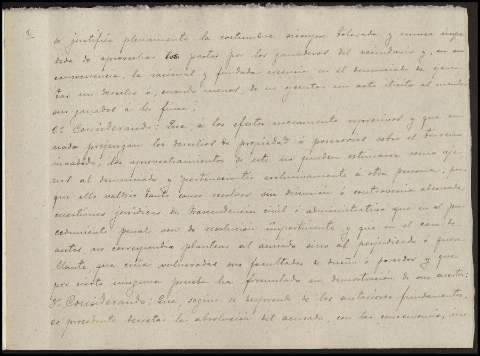 se justifica plenamente la costumbre siempre tolerada y nunca impe-
dida de aprovechar los pastos por los ganaderos del vecindario y, en su
consecuencia, la racional y fundada creencia en el denunciado de ejerci-
tar un derecho ó, cuando menos, de no ejecutar un acto ilícito al
sus ganados á la finca;
2º Considerando: Que, á los efectos meramente y que en
nada prejuzgan los derechos de propiedad ó posesorios sobre el terreno
invadido, los aprovechamientos de este no pueden estimarse como aje-
nos al denunciado y pertenecientes exclusivamente á otra persona, por-
que ello valdría tanto como resolver sin discusión ó controversia adecuadas
cuestiones jurídicas de trascendencia civil ó administrativa que en el pro-
cedimiento penal son de resolución impertinente y que en el caso de
autos no correspondía plantear al acusado sino al perjudicado ó quere-
llante, que creía vulneradas sus facultades de dueño ó poseedor y que
por cierto ninguna prueba ha formulado en demostración de su aserto;
3º Considerando: Que, según se desprende de los anteriores fundamentos,
es procedente decretar la absolución del acusado, con las consecuencias